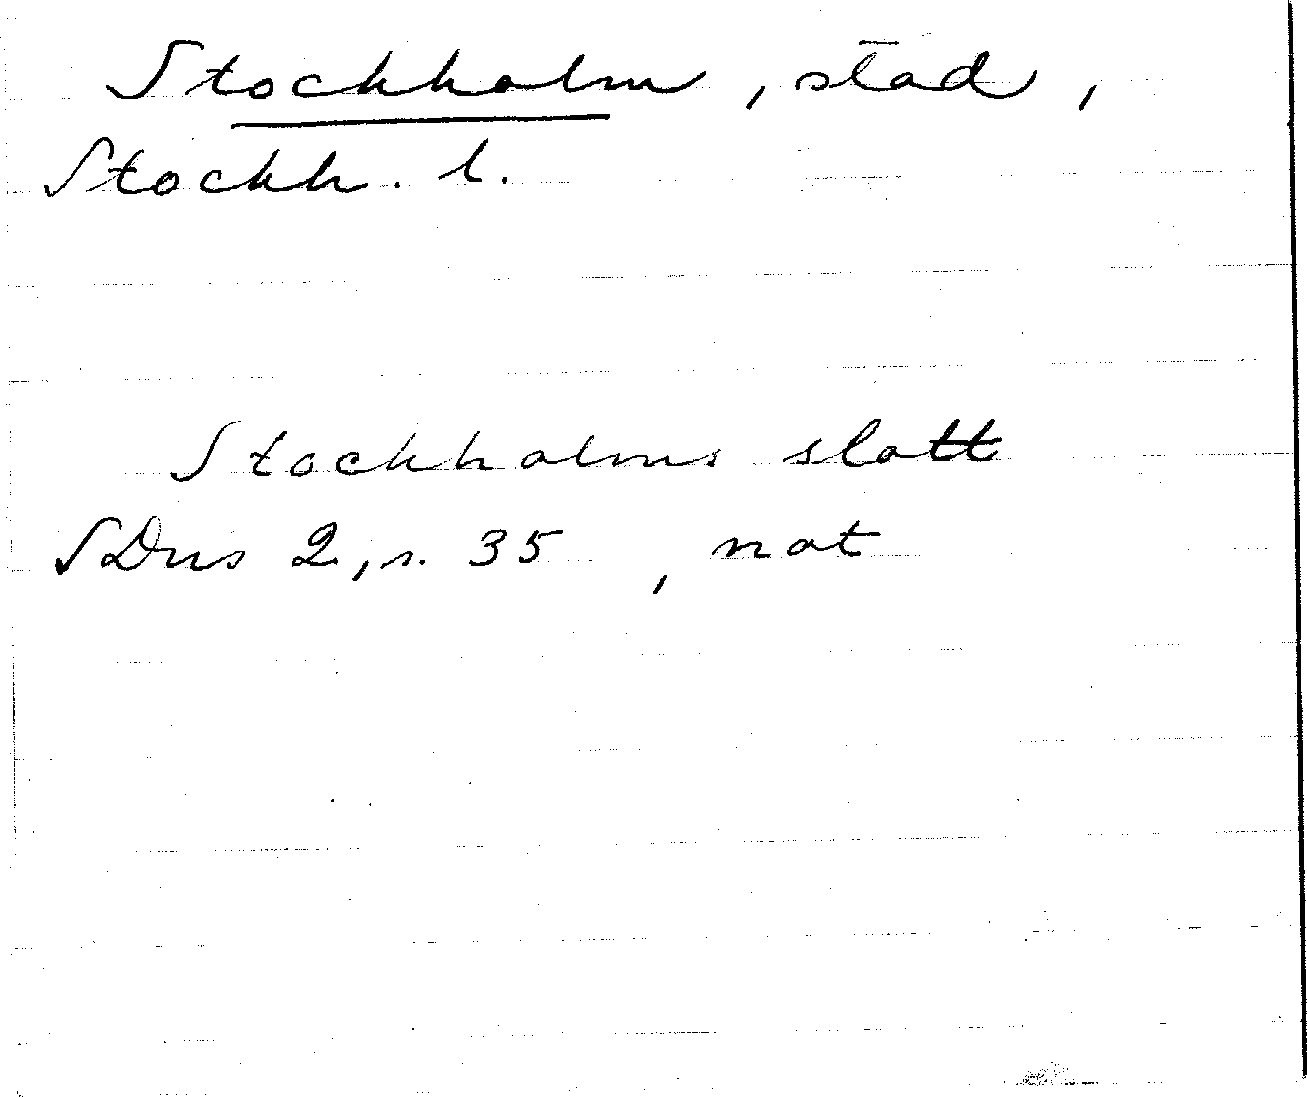 Stockholm, stad,
Stockh. l.
Stockholms slott
SDns 2, s. 35, not